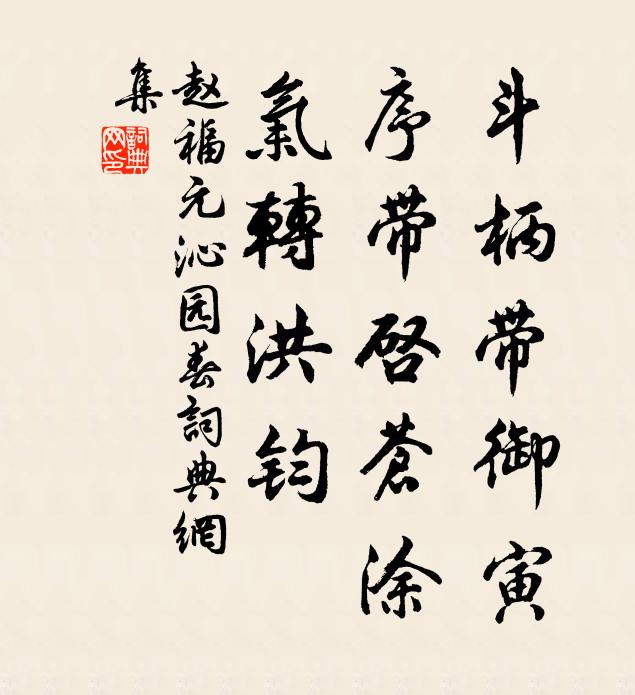 斗柄带御寅
序带启蒼涂
氣轉洪钧
赵福元沁园春詞典網
集
詞典
网印